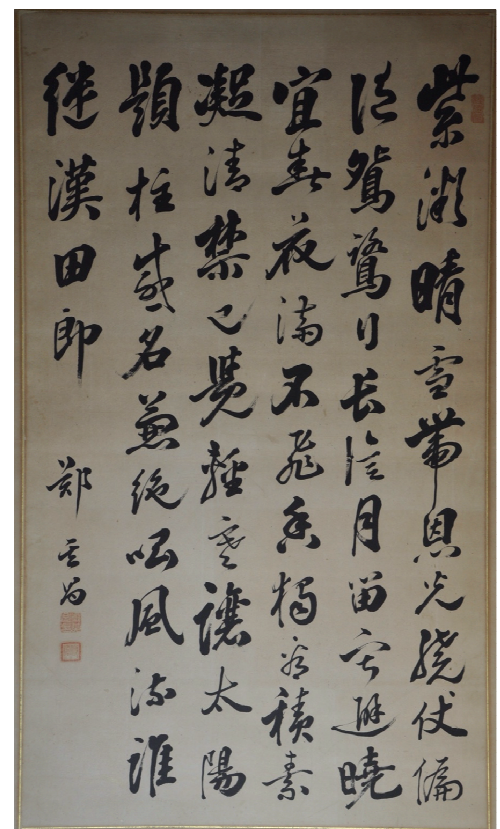 紫微晴雪帶恩光繞仗偏
随鴛鷺行長信月留寧避曉
宜春花滿不飛香獨看積素
凝清禁已覺輕寒讓太陽
題柱盛名兼絶唱風流誰
継漢田郎
鄭